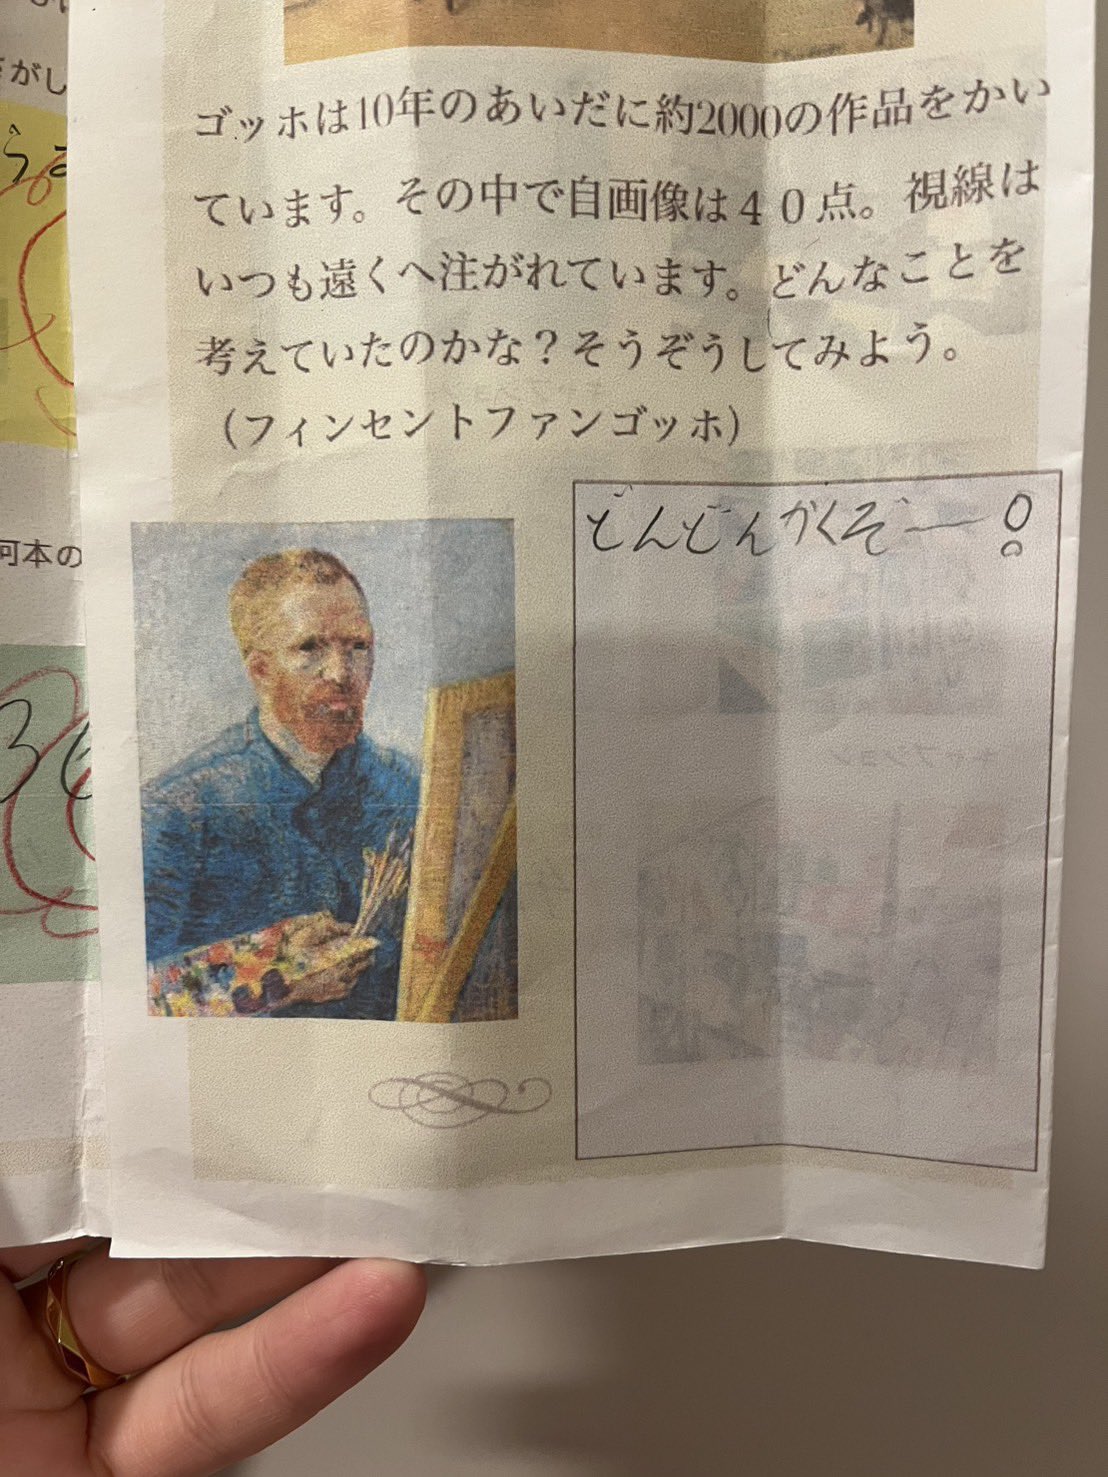 がし
ゴッホは10年のあいだに約2000の作品をかい
ています。その中で自画像は４０点。視線は
いつも遠くへ注がれています。どんなことを
考えていたのかな？そうぞうしてみよう。
（フィンセントファンゴッホ）
どんどんかくぞー！
河本の
キャプション